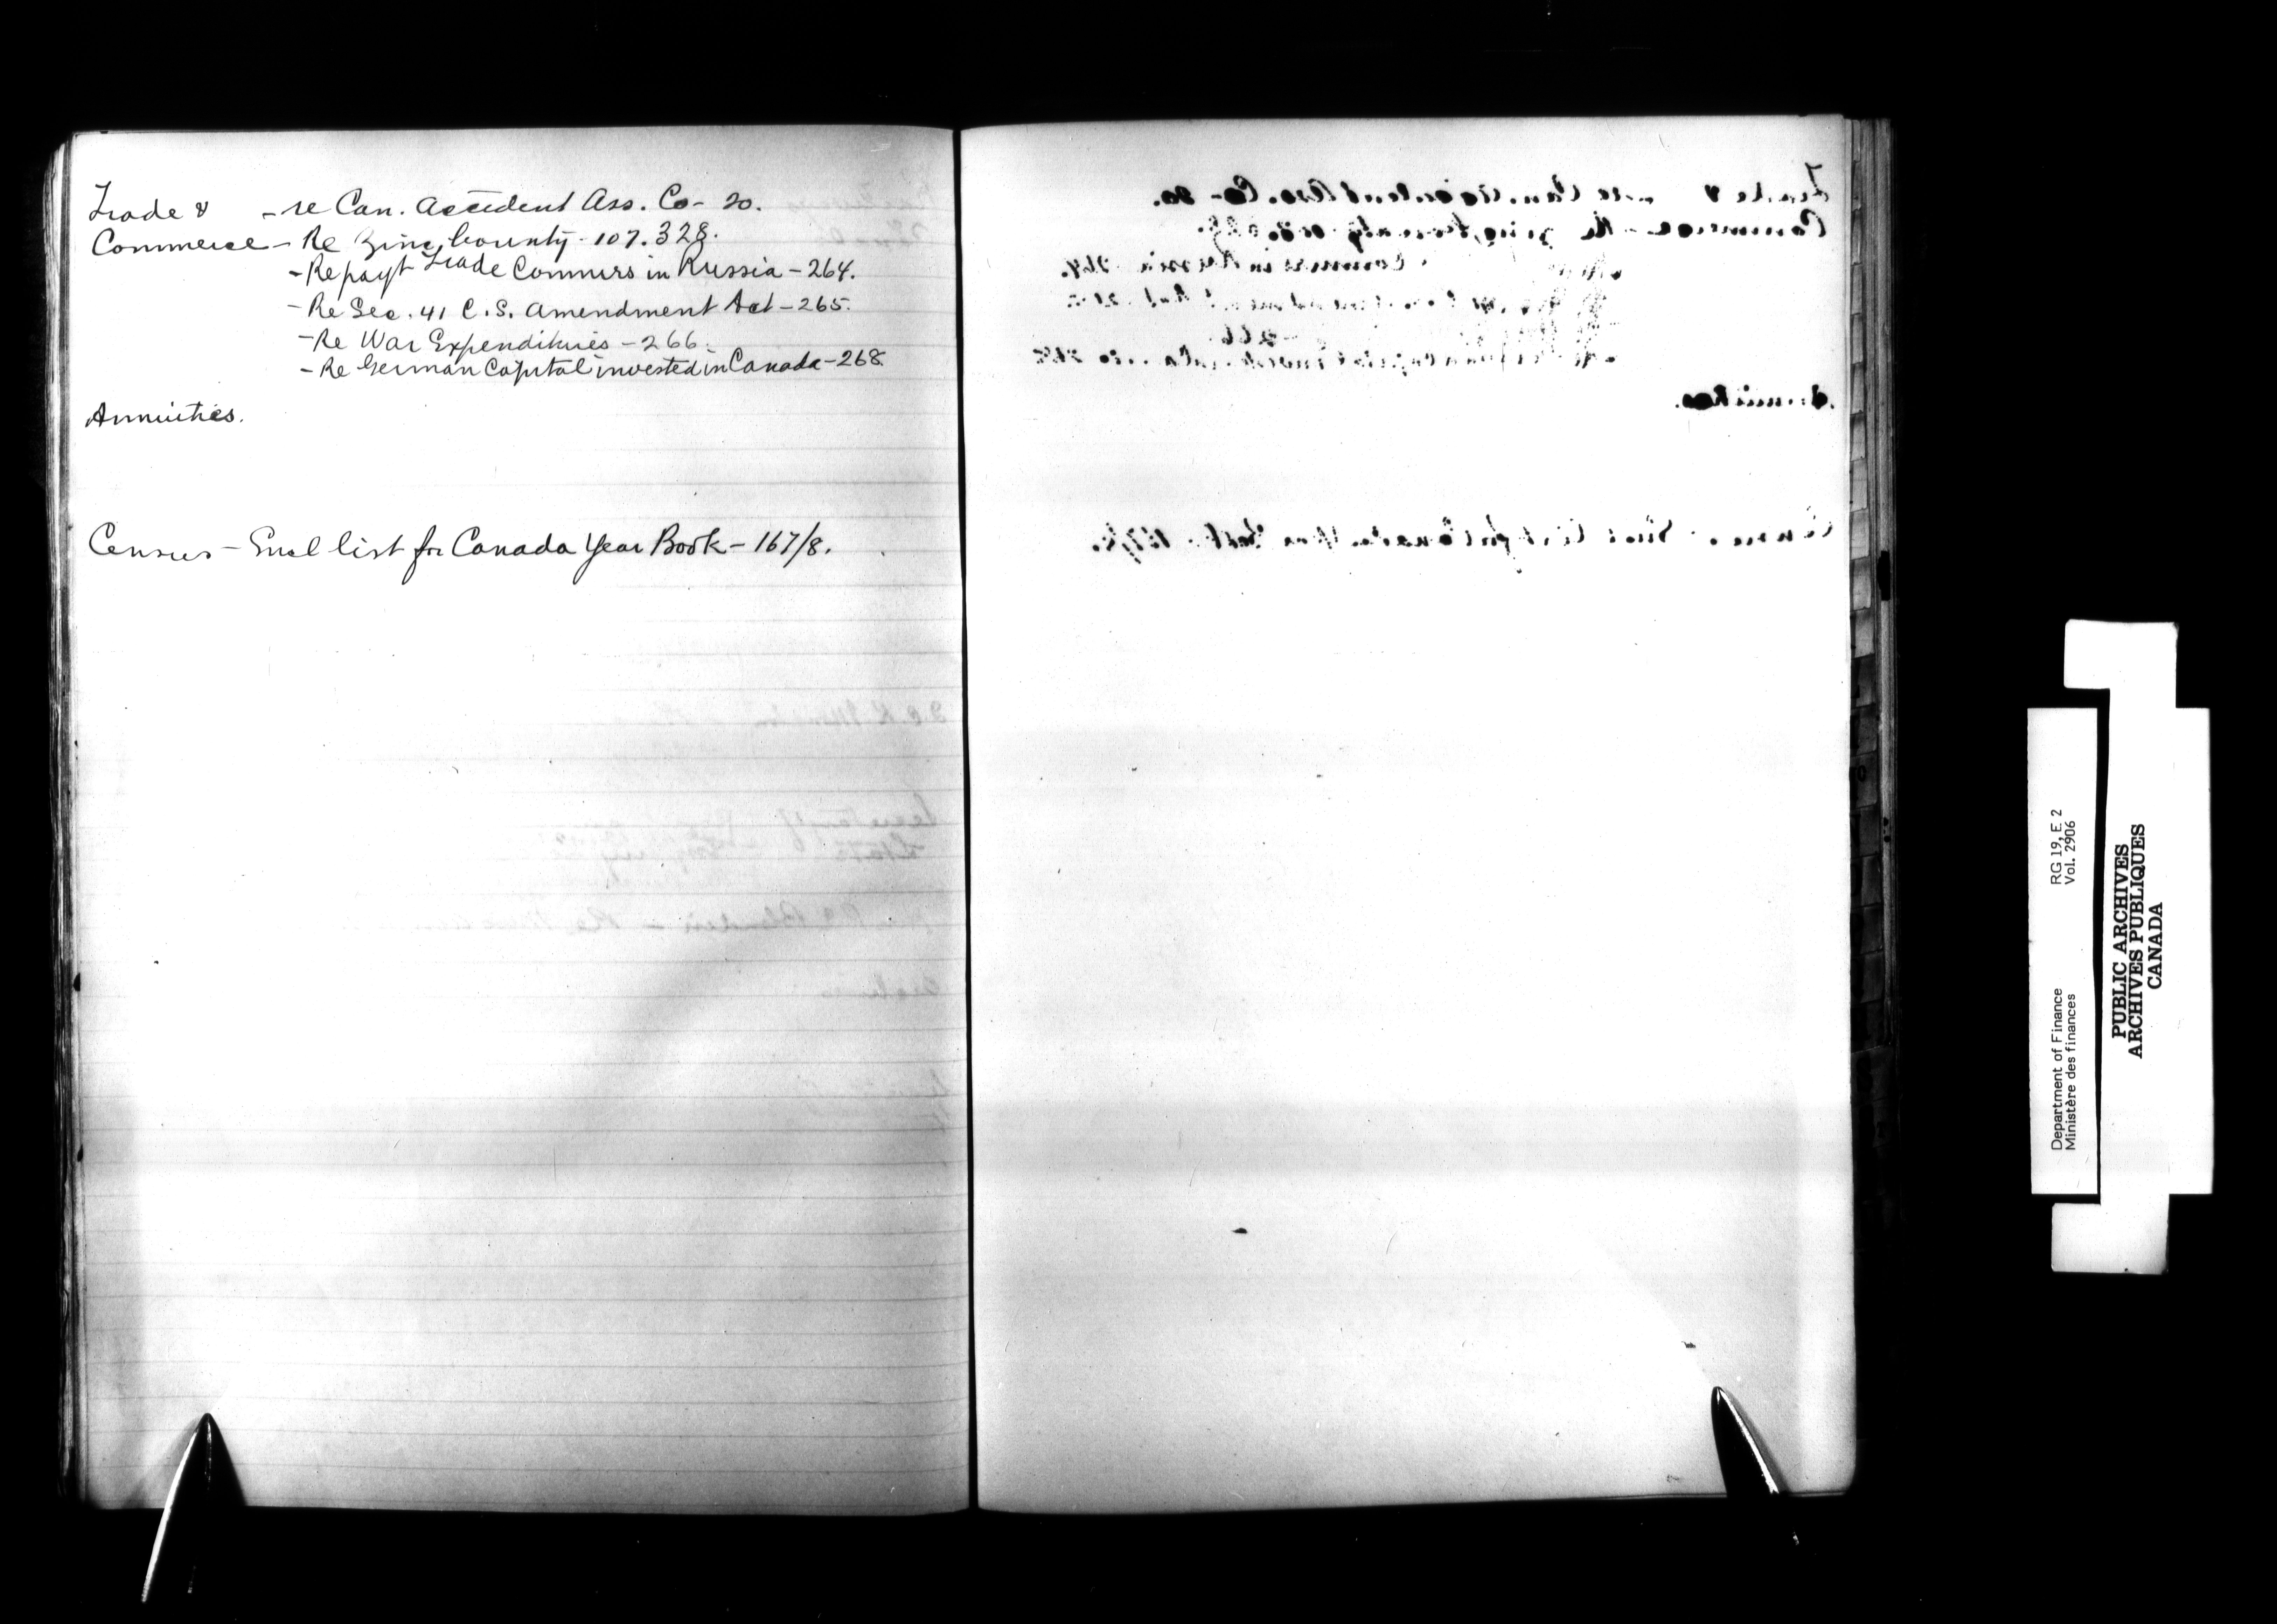 Trade & - re Can. Accident Ass. Co - 20.
Commerce - Re Zinc bounty - 107. 328.
- Re payt Trade Commrs in Russia - 264.
- Re Sec. 41 C.S. Amendment Act - 265.
- Re War Expenditures - 266.
- Re German Capital invested in Canada - 268
Annuities.
Census - Encl list for Canada Year Book - 167/8.
Department of Finance RG 19, E. 2
Ministère des finances Vol. 2906
PUBLIC ARCHIVES
ARCHIVES PUBLIQUES
CANADA